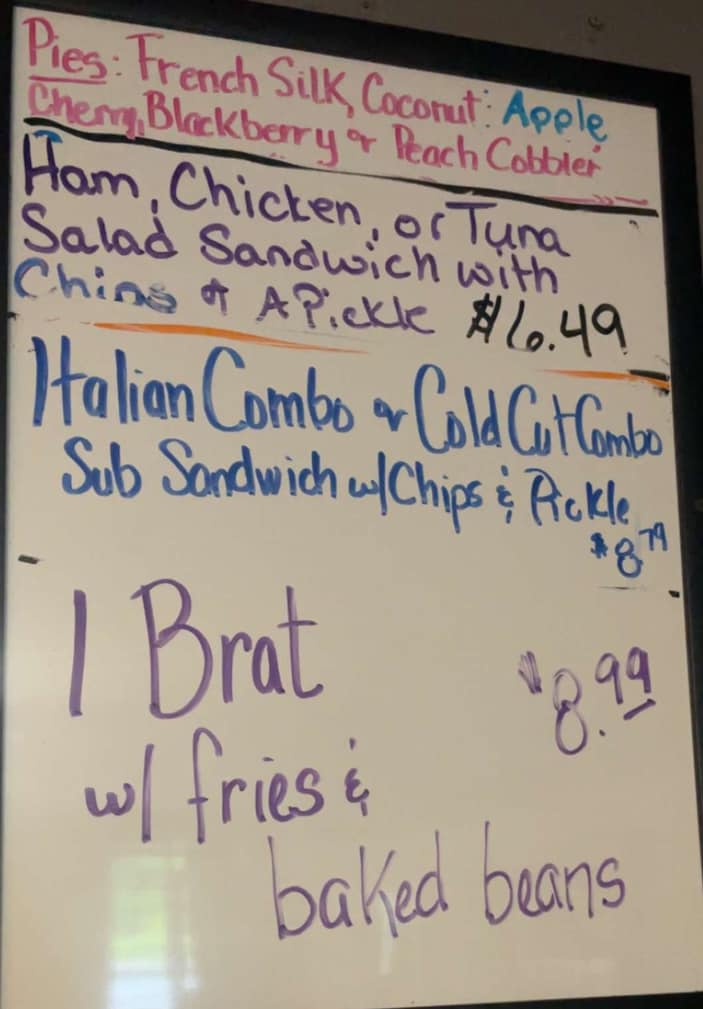 Pies: French Silk, Coconut: Apple
Cherry, Blackberry or Peach Cobbler
Ham, Chicken, or Tuna
Salad Sandwich with
Chips & A Pickle $6.49
Italian Combo or Cold Cut Combo
Sub Sandwich w/Chips & Pickle
$8.79
1 Brat
$8.99
w/ fries &
baked beans